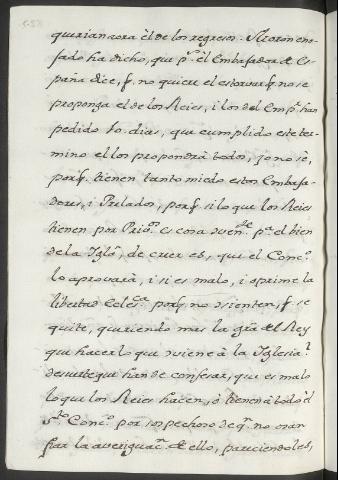 quirian aora él de los regresos. Moron eno-
fado ha dicho, que ps. el Embaxador de Es-
paña dice, q. no quiere el estorvar q. no se
proponga el de los Reies, i los del Empr. han
pedido 10. dias, que cumplido este ter-
mino ellos propondrà todos, jo no sè,
porq. tienen tanto miedo estos Embaxa-
dores, i Prelados, porq. si lo que los Reies
tienen por Privo. es cosa conte. pa. el bien
de la Iglª, de creer es, que el Conco.
lo aprovarà, i si es malo, i oprime la
libertad Eclesca. porq. no sienten, q. se
quite, queriendo mas la grª del Rey
que hacer lo que conviene à la Iglesia?
de suerte que han de confesar, que es malo
lo que los Reies hacen, ò tienen à todo el
Sto. Conco. por sospechoso de q. no osan
fiar la averiguacn. de ello, pareciendoles,